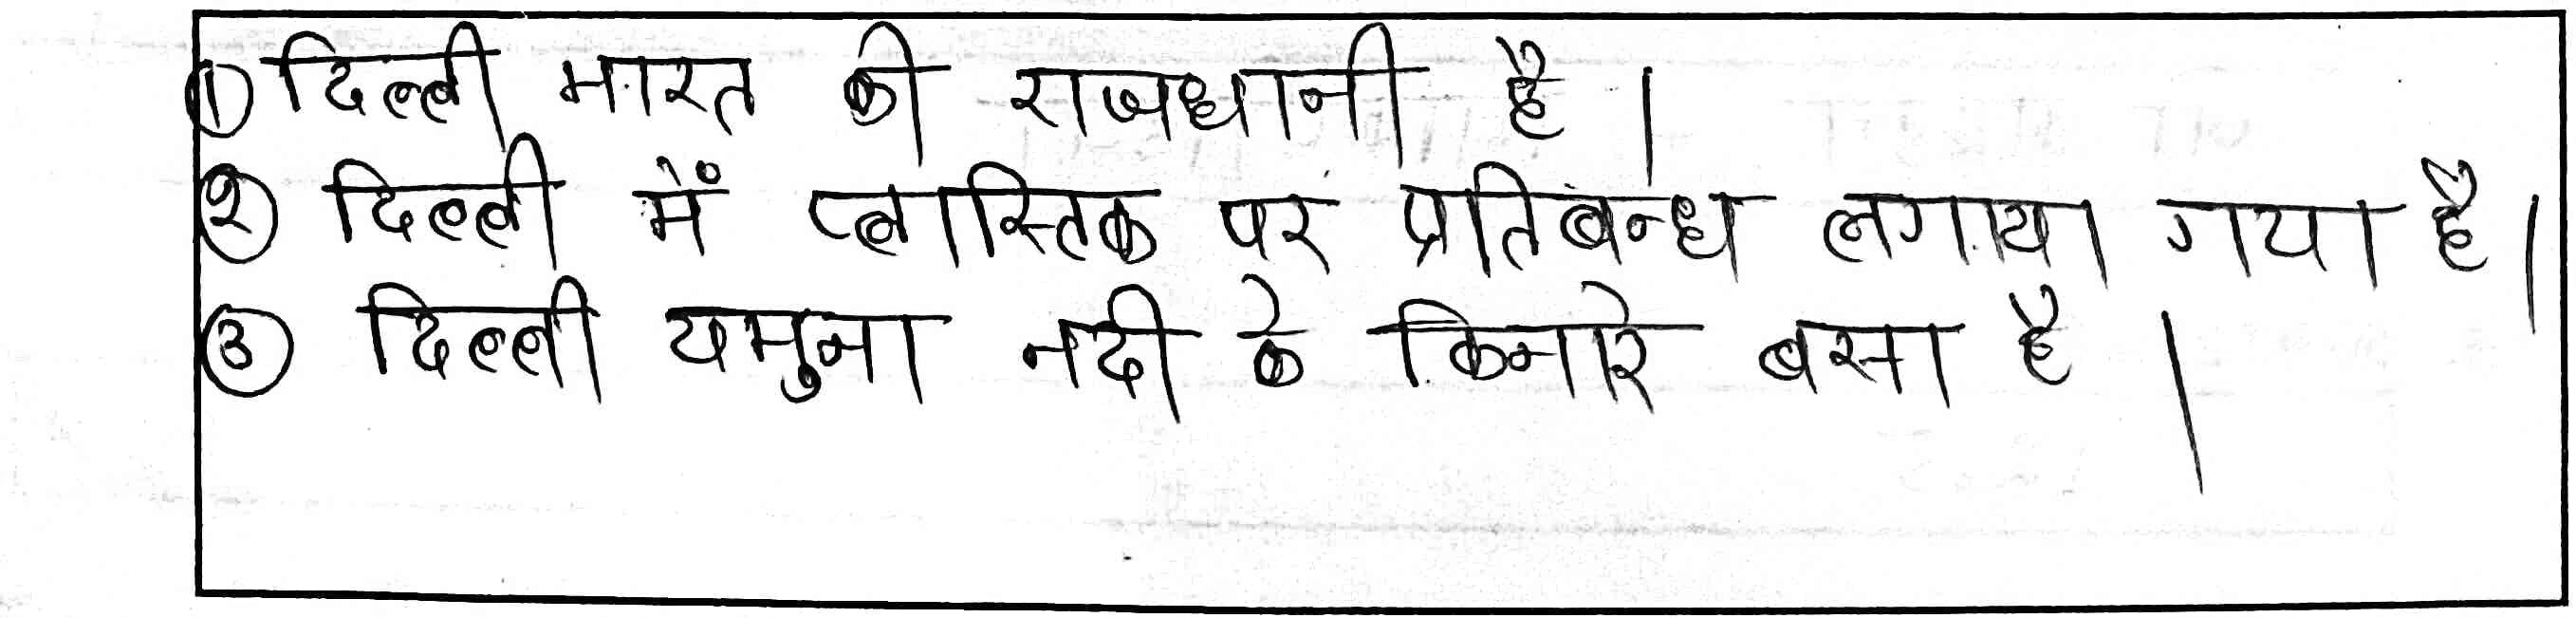 ① दिल्ली भारत की राजधानी है।
② दिल्ली में प्लास्तिक पर प्रतिबन्ध लगाया गया है।
③ दिल्ली यमुना नदी के किनारे बसा है।